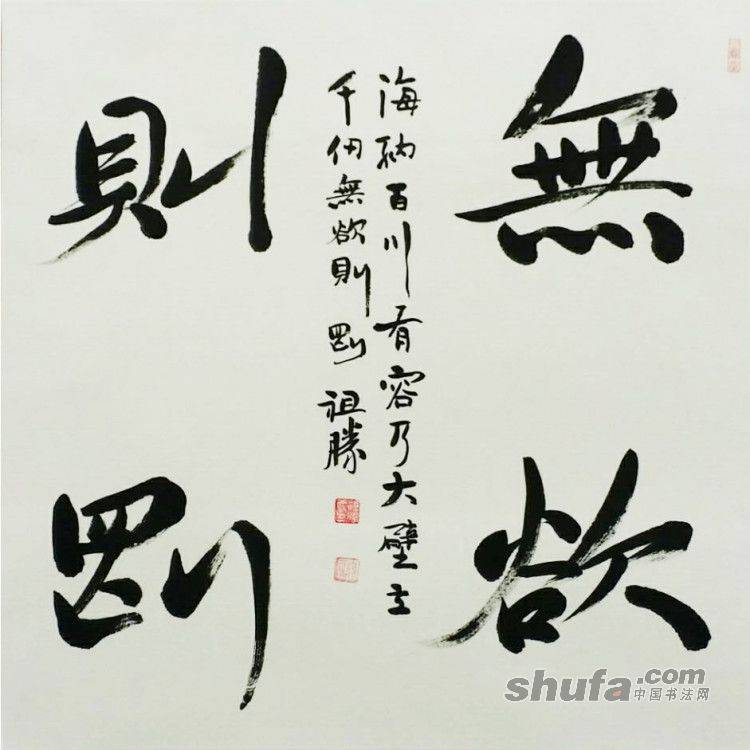 無欲
則剛
海納百川有容乃大壁立
千仞無欲則剛
祖勝
shufa.com
中国书法网